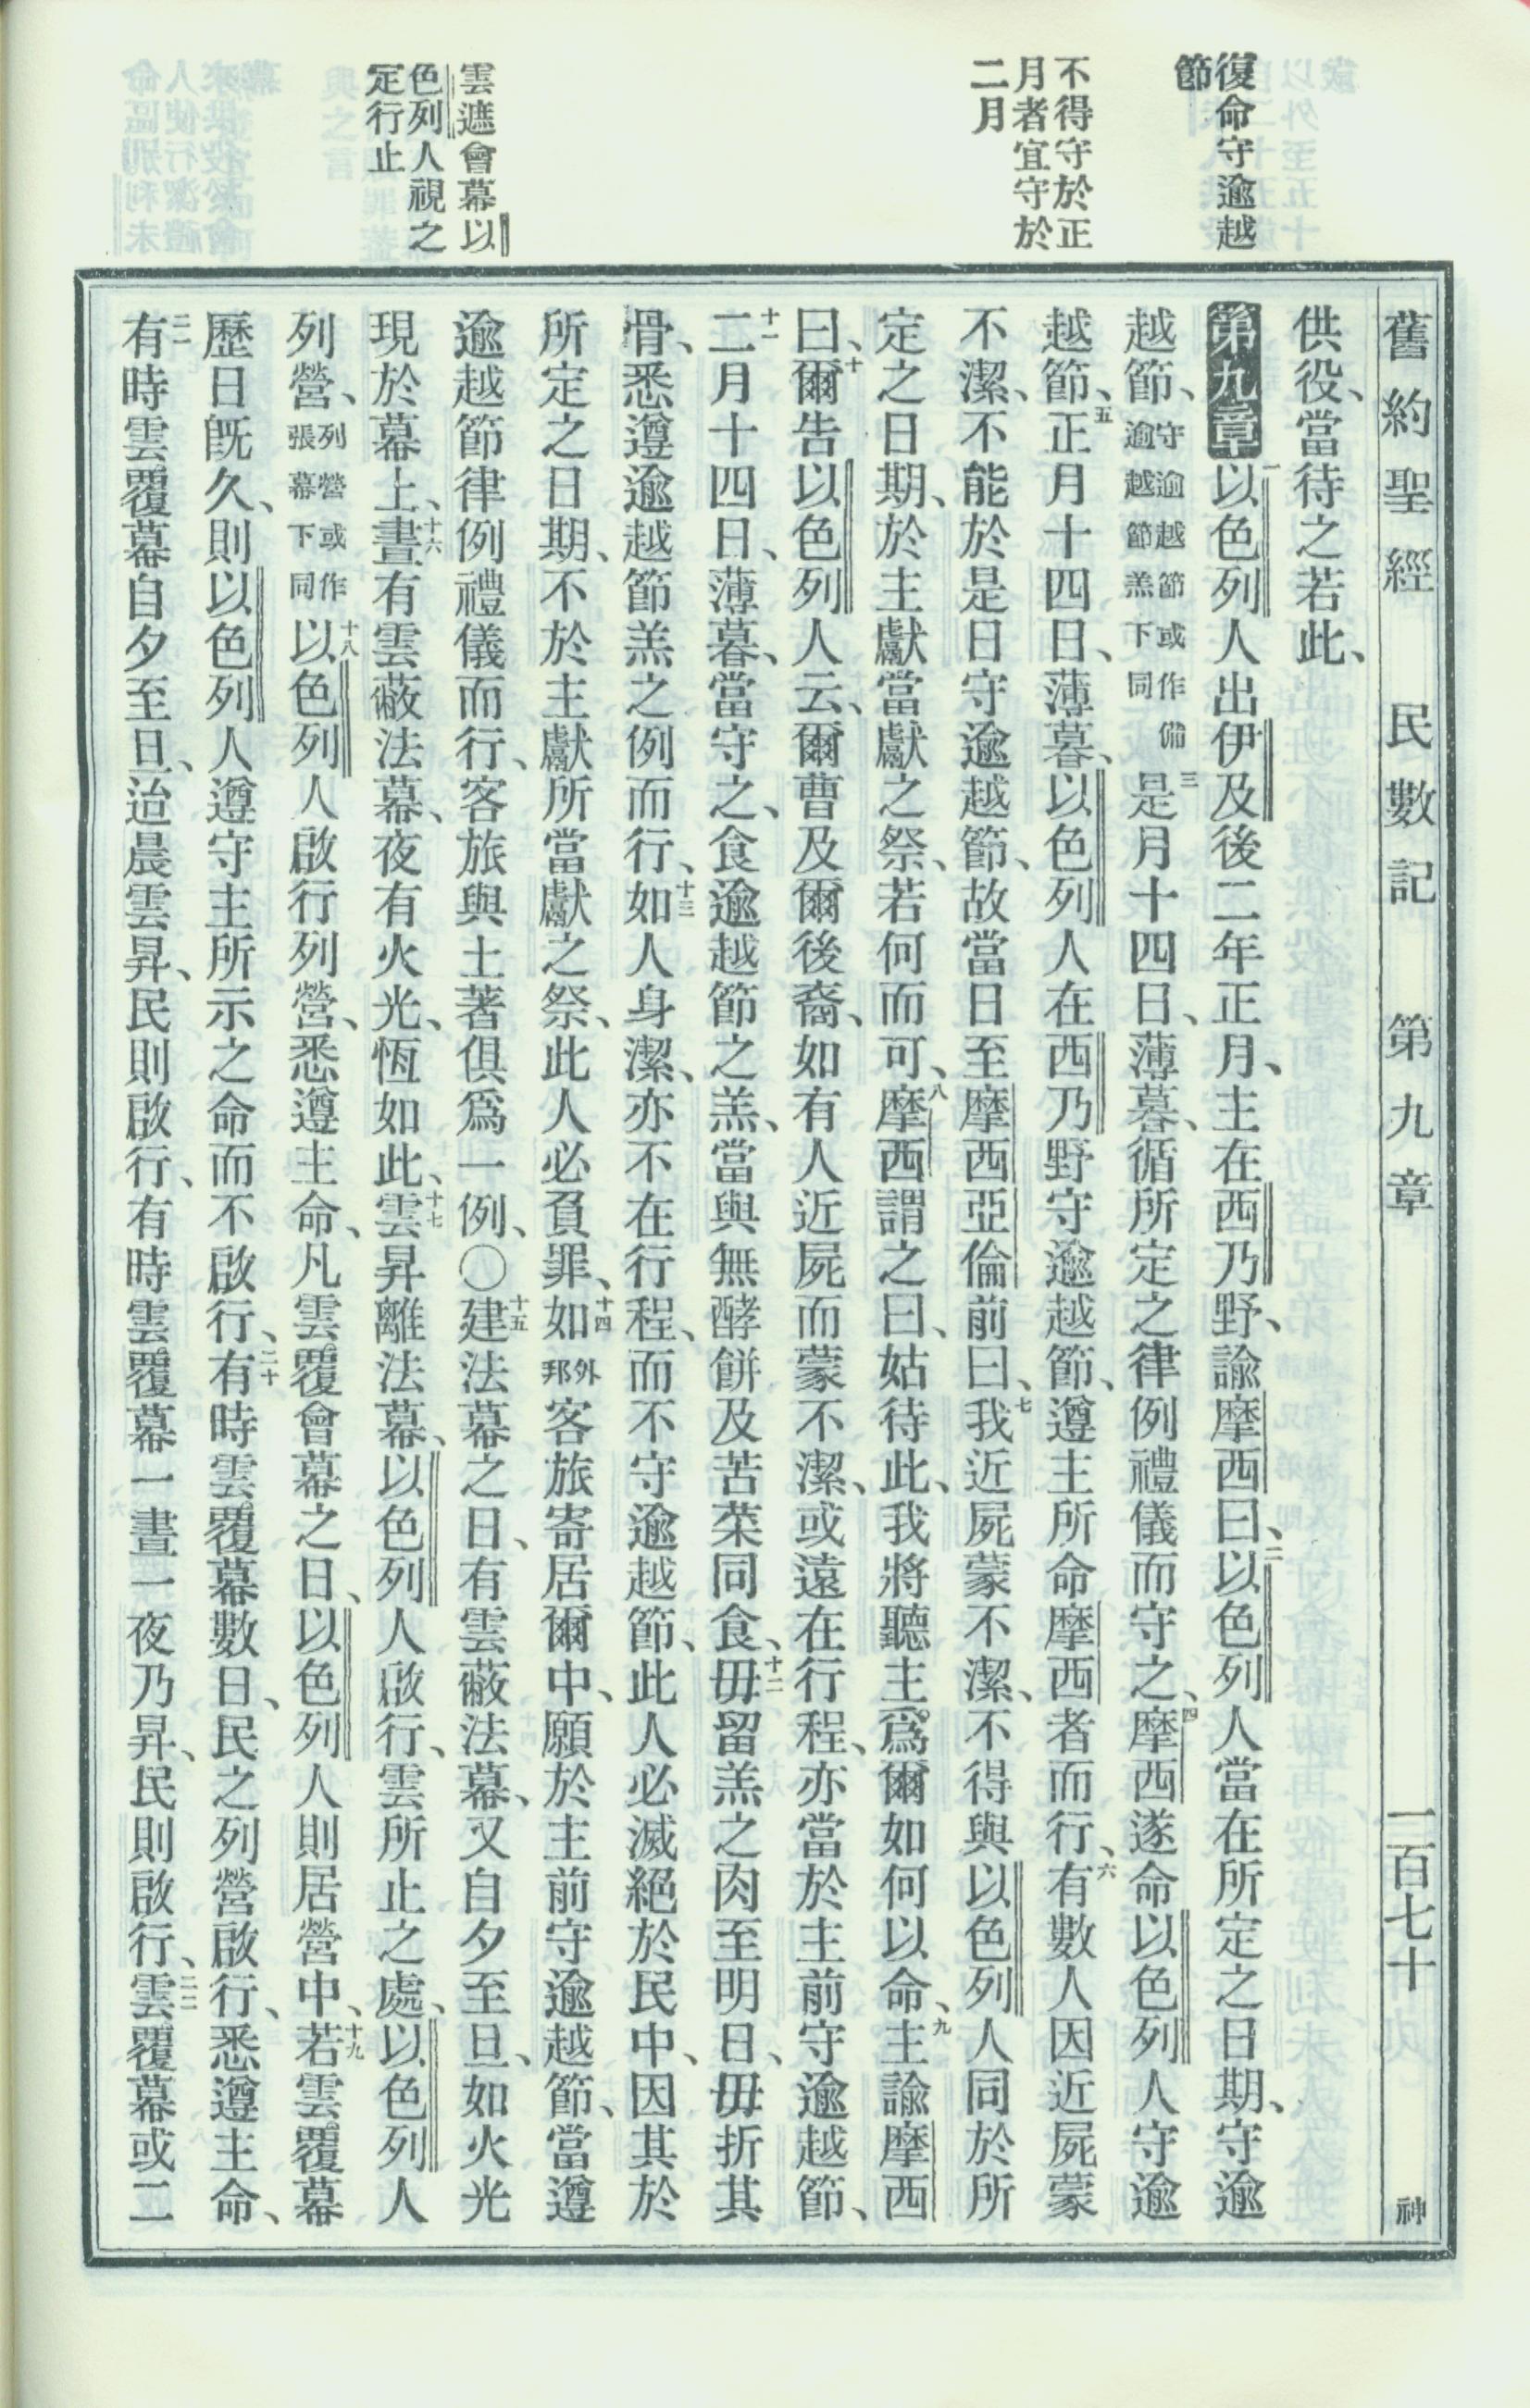 舊約聖經 民數記 第九章 一百七十 神
復命守逾越
節
不得守於正
月者宜守於
二月
雲遮會幕以
色列人視之
定行止
供役、當待之若此、
第九章 一以色列人出伊及後二年正月、主在西乃野、諭摩西曰、二以色列人當在所定之日期、守逾
越節、守逾越節或作備逾越節羔下同三是月十四日、薄暮、循所定之律例禮儀而守之、四摩西遂命以色列人守逾
越節、五正月十四日、薄暮、以色列人在西乃野守逾越節、遵主所命摩西者而行、六有數人因近屍蒙
不潔、不能於是日守逾越節、故當日至摩西亞倫前曰、七我近屍蒙不潔、不得與以色列人同於所
定之日期、於主獻當獻之祭、若何而可、八摩西謂之曰、姑待此、我將聽主爲爾如何以命、九主諭摩西
曰、十爾告以色列人云、爾曹及爾後裔、如有人近屍而蒙不潔、或遠在行程、亦當於主前守逾越節、
十一二月十四日、薄暮、當守之、食逾越節之羔、當與無酵餅及苦菜同食、十二毋留羔之肉至明日、毋折其
骨、悉遵逾越節羔之例而行、十三如人身潔、亦不在行程、而不守逾越節、此人必滅絕於民中、因其於
所定之日期、不於主獻所當獻之祭、此人必負罪、十四如外邦客旅寄居爾中、願於主前守逾越節、當遵
逾越節律例禮儀而行、客旅與土著俱爲一例、〇十五建法幕之日、有雲蔽法幕、又自夕至旦、如火光
現於幕上、十六晝有雲蔽法幕、夜有火光、恆如此、十七雲昇離法幕、以色列人啟行、雲所止之處、以色列人
列營、列營或作張幕下同十八以色列人啟行列營、悉遵主命、凡雲覆會幕之日、以色列人則居營中、十九若雲覆幕
歷日旣久、則以色列人遵守主所示之命而不啟行、二十有時雲覆幕數日、民之列營啟行、悉遵主命、
二一有時雲覆幕自夕至旦、迨晨雲昇、民則啟行、有時雲覆幕一晝一夜乃昇、民則啟行、二二雲覆幕或二